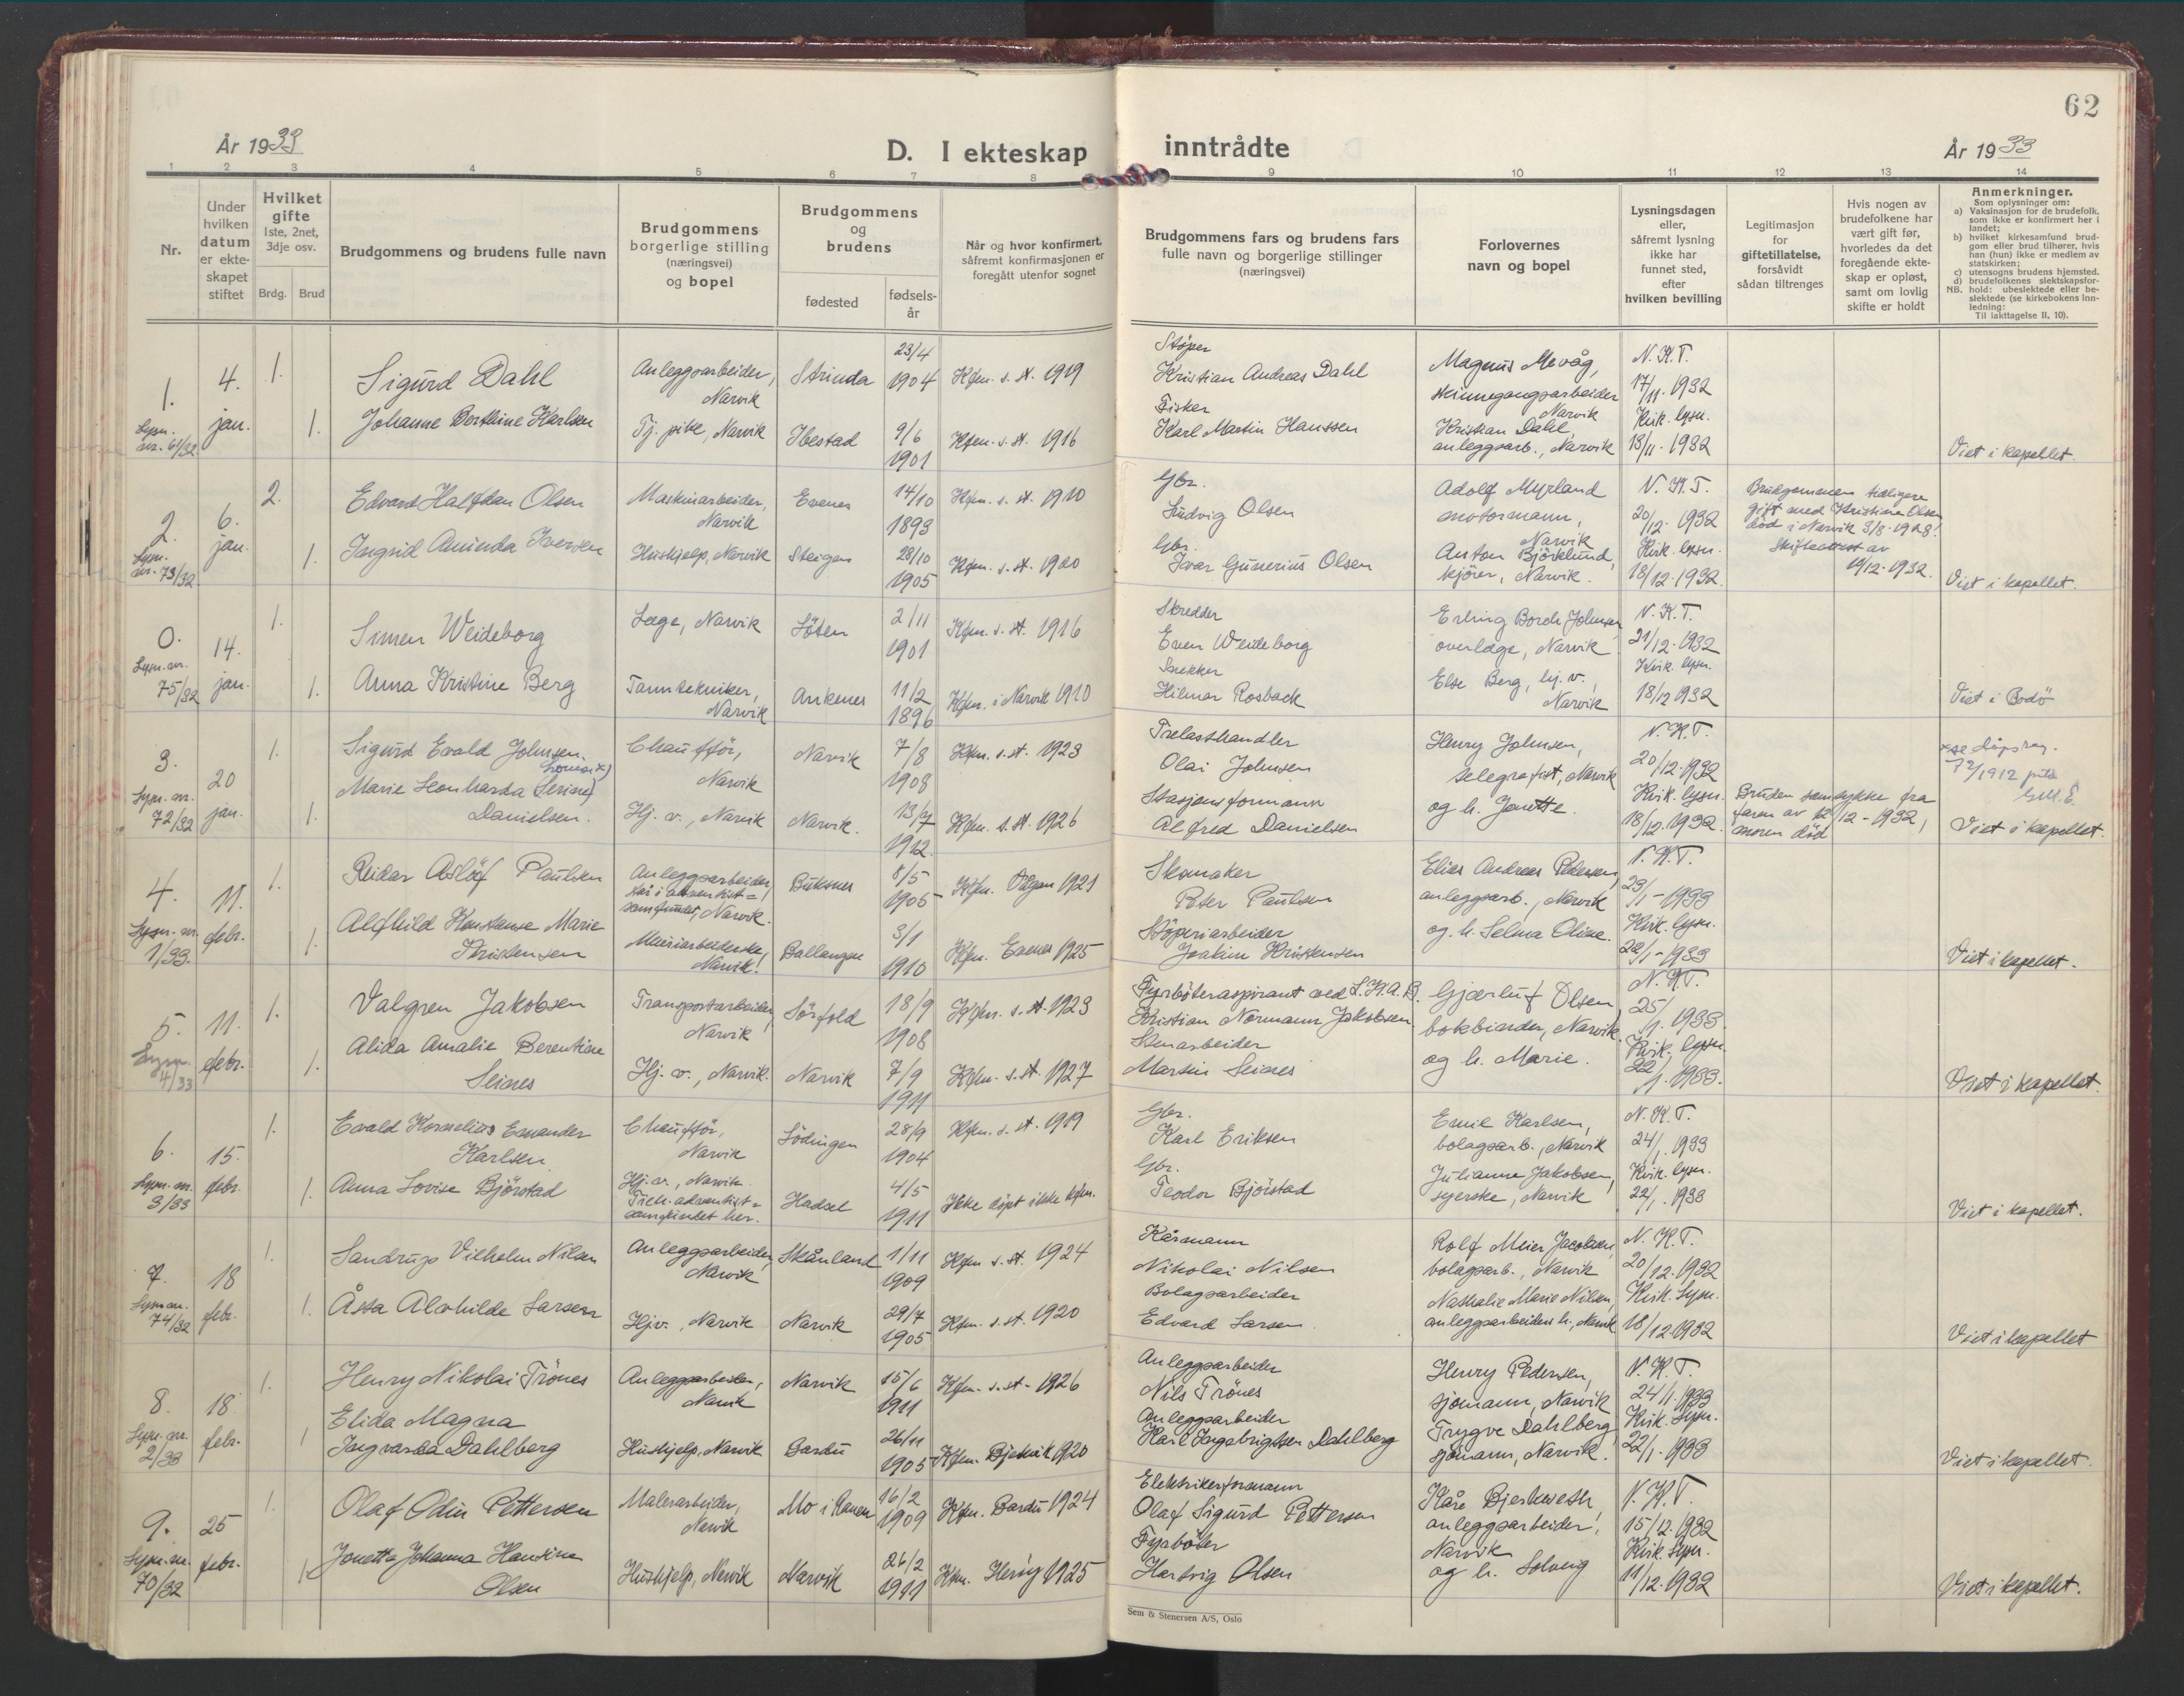 62
År 1933
D. I ekteskap inntrådte
År 1933
1 2 3 4 5 6 7 8 9 10 11 12 13 14
Nr.
Under hvilken datum er ekteskapet stiftet
Hvilket gifte
1ste, 2net, 3dje osv.
Brdg. Brud
Brudgommens og brudens fulle navn
Brudgommens borgerlige stilling (næringsvei) og bopel
Brudgommens og brudens
fødested
fødsels-år
Når og hvor konfirmert, såfremt konfirmasjonen er foregått utenfor sognet
Brudgommens fars og brudens fars fulle navn og borgerlige stillinger (næringsvei)
Forlovernes navn og bopel
Lysningsdagen eller, såfremt lysning ikke har funnet sted, efter hvilken bevilling
Legitimasjon for giftetillatelse, forsåvidt sådan tiltrenges
Hvis nogen av brudefolkene har vært gift før, hvorledes da det foregående ekteskap er opløst, samt om lovlig skifte er holdt
Anmerkninger.
Som oplysninger om:
a) Vaksinasjon for de brudefolk, som ikke er konfirmert her i landet;
b) hvilket kirkesamfund brudgom eller brud tilhører, hvis han (hun) ikke er medlem av statskirken;
c) utensogns brudens hjemsted.
d) brudefolkenes slektskapsforhold: ubeslektede eller beslektede (se kirkebokens innledning:
NB. Til iakttagelse II, 10).
1. Lysn. nr. 61/32
4. jan.
1.
Sigurd Dahl
Anleggsarbeider, Narvik
Strinda
23/4 1904
Kfm. s. st. 1919
Støper
Kristian Andreas Dahl
Magnus Mevåg, skinnegangsarbeider Narvik
N. K. T. 17/11. 1932
1.
Johanne Dorthine Karlsen
Tj. pike, Narvik
Ibestad
9/6 1901
Kfm. s. st. 1916
Fisker
Karl Martin Hanssen
Kristian Dahl, anleggsarb., Narvik
Kirk. lysn. 13/11. 1932
Viet i kapellet.
2. Lysn. nr. 73/32
6. jan.
2.
Edvard Halfdan Olsen
Maskinarbeider, Narvik
Evenes
14/10 1893
Kfm. s. st. 1910
Gbr.
Ludvig Olsen
Adolf Myrland motormann, Narvik
N. K. T. 20/12. 1932
Brudgommen tidligere gift med Kristine Olsen død i Narvik 3/8. 1928!
Skifteattest av 19/12. 1932.
1.
Ingrid Aminda Iversen
Hushjelp, Narvik
Steigen
28/10 1905
Kfm. s. st. 1920
Gbr.
Ivar Gunerius Olsen
Anton Björklund, kjører, Narvik.
Kirk. lysn. 18/12. 1932
Viet i kapellet.
0. Lysn. nr. 75/32
14. jan.
1.
Simen Weideborg
Læge, Narvik
Löten
2/11 1901
Kfm. s. st. 1916
Skredder
Even Weideborg
Erling Borch Johnsen overlæge, Narvik
N. K. T. 21/12. 1932
1.
Anna Kristine Berg
Tanntekniker, Narvik
Ankenes
11/2 1896
Kfm. i Narvik 1910
Snekker
Hilmar Rosback
Else Berg, hj. v., Narvik
Kirk. lysn. 18/12 1932
Viet i Bodö
3. Lysn. nr. 72/32
20 jan.
1.
Sigurd Evald Johnsen.
Chaufför, Narvik
Narvik
7/8 1908
Kfm. s. st. 1923
Trelasthandler
Olai Johnsen
Henry Johnsen, telegrafist, Narvik
N. K. T. 20/12. 1932
1.
Marie Leonharda (Serine) Lovise x) Danielsen.
Hj. v., Narvik
Narvik.
13/7 1912.
Kfm. s. st. 1926
Stasjonsformann
Alfred Danielsen
og h. Jonette.
Kirk. lysn. 18/12. 1932.
Bruden samtykke fra faren av 12/12 - 1932, moren död
Viet i kapellet.
4. Lysn. nr. 1/33.
11. febr.
1.
Reidar Asløf Paulsen
Anleggsarbeider, Narvik.
Buksnes
8/5 1905
Kfm. 1921
Skomaker
Peter Paulsen
Elias Andreas Pedersen, anleggsarb., Narvik
N. K. T. 23/1 - 1933
1.
Alfhild Konstanse Marie Kristensen
Meieriarbeiderske, Narvik!
Ballangen
3/1 1910
Kfm. Evenes 1925
Støperiarbeider
Joakim Kristensen
og h. Selma Oline.
Kirk. lysn. 22/1 - 1933
Viet i kapellet.
5. Lysn. 4/33
11. febr.
1.
Valgren Jakobsen
Transportarbeider, Narvik
Sörfold
18/9 1908
Kfm. s. st. 1923
Fyrbøteraspirant ved L.K.A.B.
Kristian Normann Jakobsen
Gjærluf Olsen, bokbinder, Narvik.
N. K. T. 25/1. 1933
1.
Alida Amalie Berentine Seines
Hj. v., Narvik.
Narvik
7/9 1911
Kfm. s. st. 1927
Stenarbeider
Martin Seines
og h. Marie.
Kirk. lysn. 22/1. 1933.
Viet i kapellet.
6. Lysn. nr. 3/33
15. febr.
1.
Evald Kornelius Emander Karlsen
Chaufför, Narvik
Lödingen
28/9 1904
Kfm. s. st. 1919
Gbr.
Karl Eriksen
Emil Karlsen, bolagsarb., Narvik
N. K. T. 24/1. 1933
1.
Anna Lovise Björstad
Hj. v., Narvik. Tilh. adventistsamfundet her.
Hadsel
4/5 1911
Ikke döpt ikke kfm.
Gbr.
Teodor Björstad
Julianne Jakobsen, syerske, Narvik
Kirk. lysn. 22/1. 1933
Viet i kapellet.
7. Lysn. nr. 74/32
18 febr.
1.
Sandrup Vilhelm Nilsen
Anleggsarbeider, Narvik
Skånland
1/11 1909
Kfm. s. st. 1924
Kårmann
Nikolai Nilsen
Rolf Meier Jacobsen, bolagsarb., Narvik
N. K. T. 20/12. 1932
1.
Åsta Alvhilde Larsen
Hj.v., Narvik
Narvik
29/7 1905
Kfm. s. st. 1920
Bolagsarbeider
Edvard Larsen.
Nathalie Marie Nilsen, anleggsarbeiders h., Narvik
Kirk. lysn. 18/12. 1932
Viet i kapellet
8. Lysn. nr. 2/33
18 febr.
1.
Henry Nikolai Trönes
Anleggsarbeider, Narvik
Narvik
15/6 1911
Kfm. s. st. 1926
Anleggsarbeider
Nils Trönes
Henry Pedersen, sjömann, Narvik
N. K. T. 24/1. 1933
1
Elida Magna Ingvarda Dahlberg
Hushjelp, Narvik
Bardu
26/11 1905
Kfm. Bjerkvik 1920
Anleggsarbeider
Karl Ingebrigtsen Dahlberg
Trygve Dahlberg sjömann, Narvik.
Kirk. lysn. 22/1. 1933
Viet i kapellet.
9. Lysn. nr. 70/32
25 febr.
1.
Olaf Odin Pettersen
Malerarbeider, Narvik
Mo i Ranen
16/2 1909
Kfm. Bardu 1924
Elektrikerformann
Olaf Sigurd Pettersen
Kåre Bjerkvoth, anleggsarbeider, Narvik
N. K. T. 15/12. 1932
1.
Jonetta Johanna Hansine Olsen
Hushjelp, Narvik
Narvik
26/2 1911
Kfm. Heröy 1925
Fyrböter
Hartvig Olsen
og h. Solveig
Kirk. lysn. 11/12. 1932
Viet i kapellet.
Sem & Stenersen A/S, Oslo